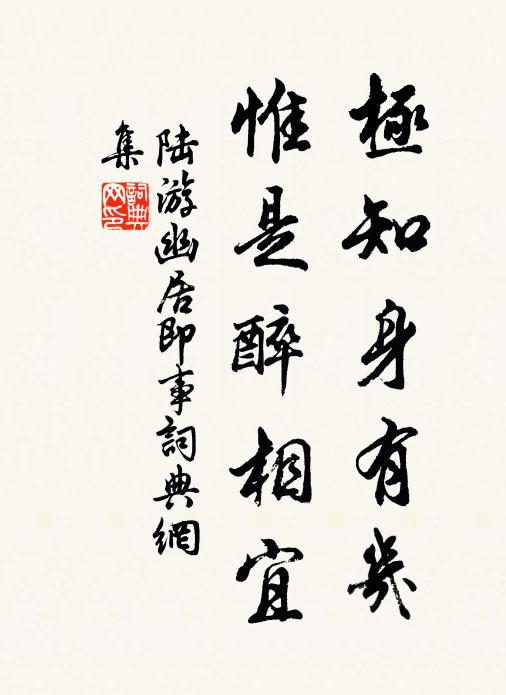 極知身有幾
惟是醉相宜
陸游幽居即事詞典網
集
詞典
网印